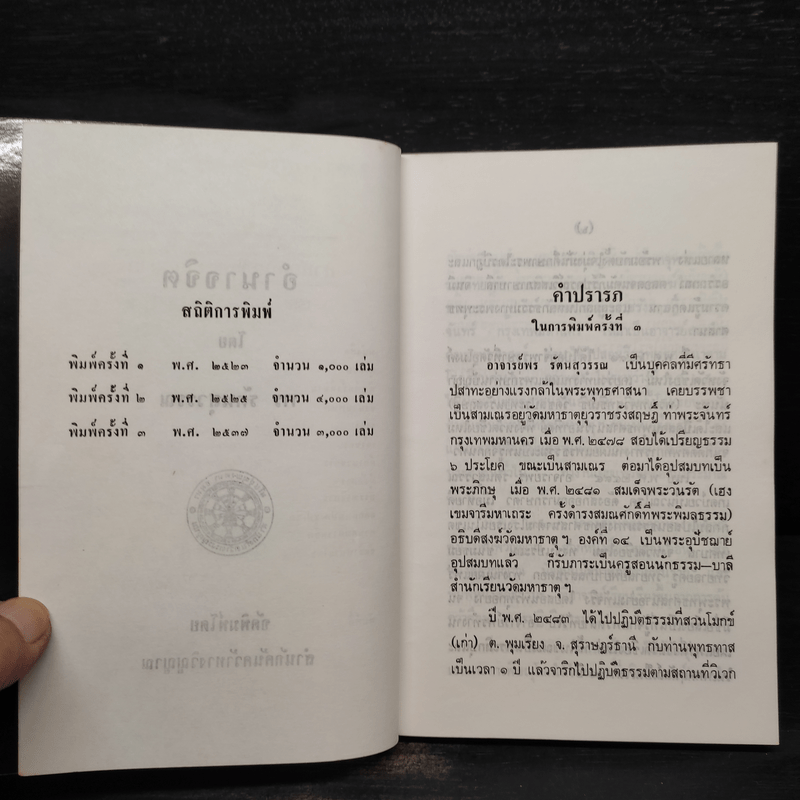 สถิติการพิมพ์
พิมพ์ครั้งที่ ๑ พ.ศ. ๒๕๒๓ จำนวน ๑,๐๐๐ เล่ม
พิมพ์ครั้งที่ ๒ พ.ศ. ๒๕๒๕ จำนวน ๔,๐๐๐ เล่ม
พิมพ์ครั้งที่ ๓ พ.ศ. ๒๕๓๗ จำนวน ๓,๐๐๐ เล่ม
คำปรารภ
ในการพิมพ์ครั้งที่ ๓
อาจารย์พร รัตนสุวรรณ เป็นบุคคลที่มีศรัทธา
ปสาทะอย่างแรงกล้าในพระพุทธศาสนา เคยบรรพชา
เป็นสามเณรอยู่วัดมหาธาตุยุวราชรังสฤษฎิ์ ท่าพระจันทร์
กรุงเทพมหานคร เมื่อ พ.ศ. ๒๔๗๘ สอบได้เปรียญธรรม
๖ ประโยค ขณะเป็นสามเณร ต่อมาได้อุปสมบทเป็น
พระภิกษุ เมื่อ พ.ศ. ๒๔๘๑ สมเด็จพระวันรัต (เฮง
เขมจารีมหาเถระ ครั้งดำรงสมณศักดิ์ที่พระพิมลธรรม)
อธิบดีสงฆ์วัดมหาธาตุ ฯ องค์ที่ ๑๔ เป็นพระอุปัชฌาย์
อุปสมบทแล้ว ก็รับภาระเป็นครูสอนนักธรรม—บาลี
สำนักเรียนวัดมหาธาตุ ฯ
ปี พ.ศ. ๒๔๘๓ ได้ไปปฏิบัติธรรมที่สวนโมกข์
(เก่า) ต. พุมเรียง จ. สุราษฎร์ธานี กับท่านพุทธทาส
เป็นเวลา ๑ ปี แล้วจาริกไปปฏิบัติธรรมตามสถานที่วิเวก